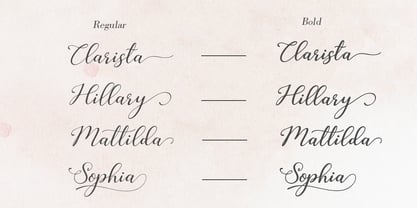 Regular Bold
Clarista Clarista
Hillary Hillary
Mattilda Mattilda
Sophia Sophia